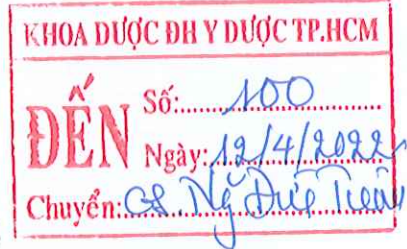 KHOA DƯỢC ĐH Y DƯỢC TP.HCM
ĐẾN
Số:.......100............
Ngày:.12/4/2022
Chuyển:.GS. Ng Đức Tuấn